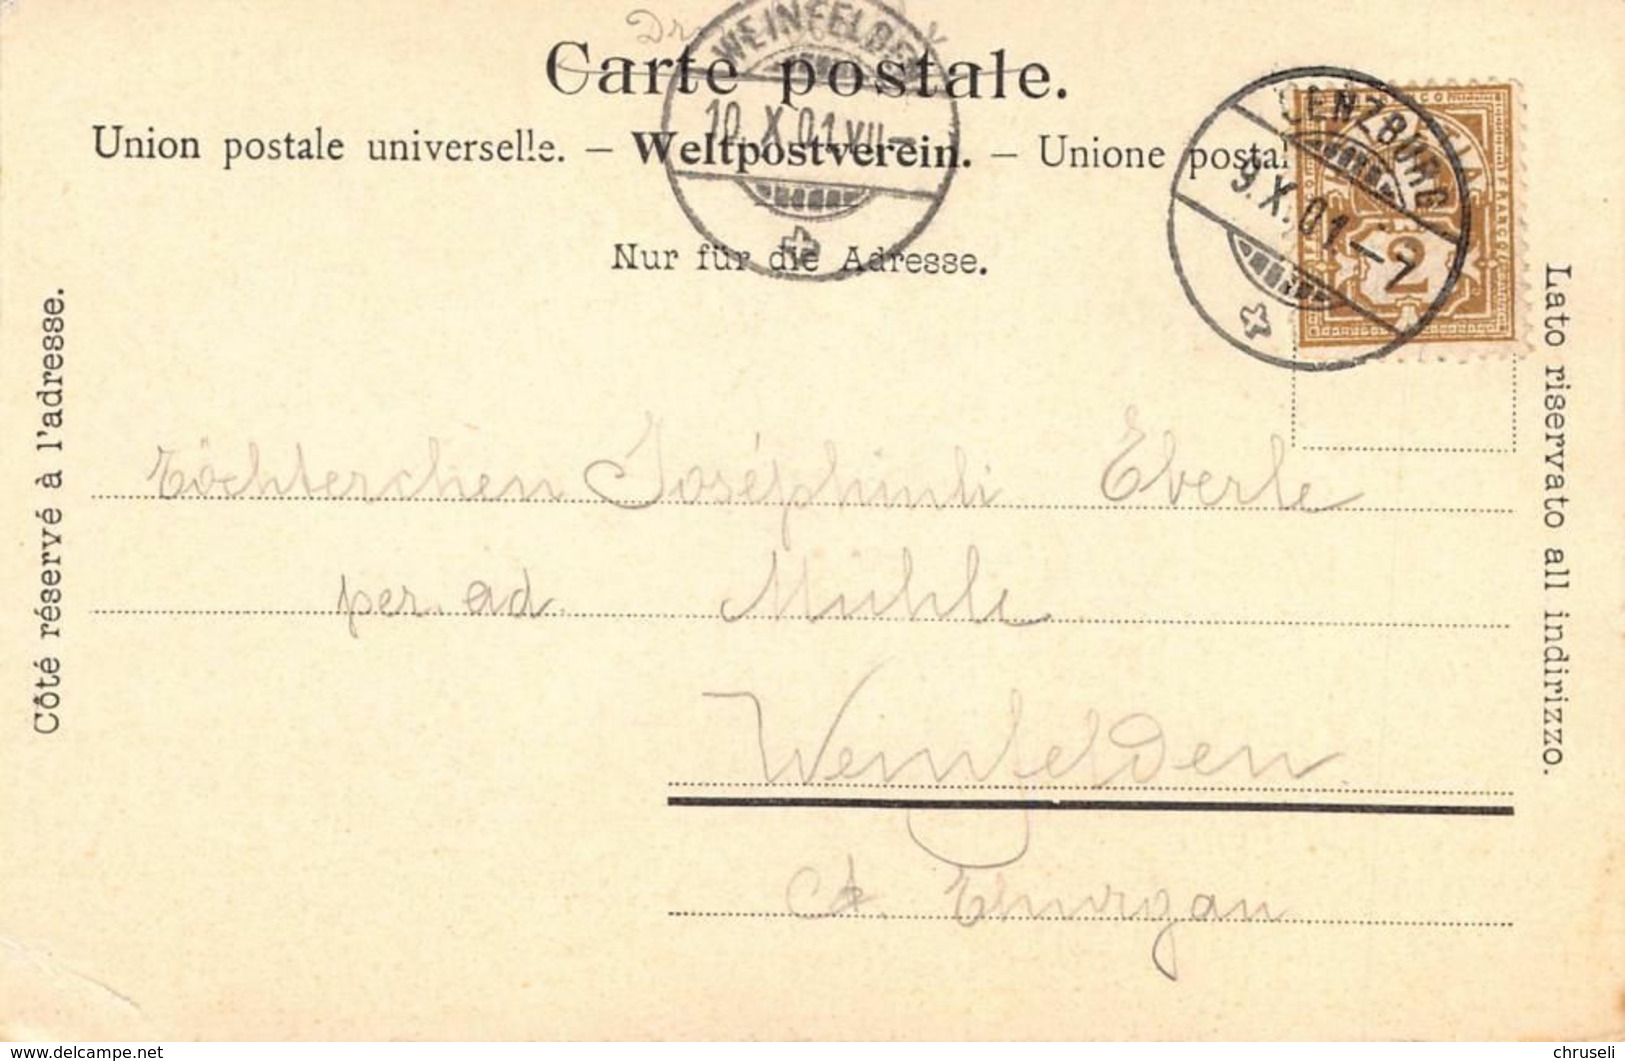 Carte postale.
Union postale universelle. – Weltpostverein. – Unione postal
Nur für die Adresse.
Côté réservé à l'adresse.
Lato riservato all indirizzo.
WEINFELDEN
10. X. 01. VII–
LENZBURG
9. X. 01 – 7
FRANCO
2
Töchterchen Joséphinli Eberle
per. ad. Mühle
Weinfelden
Ct. Thurgau
www.delcampe.net
chruseli